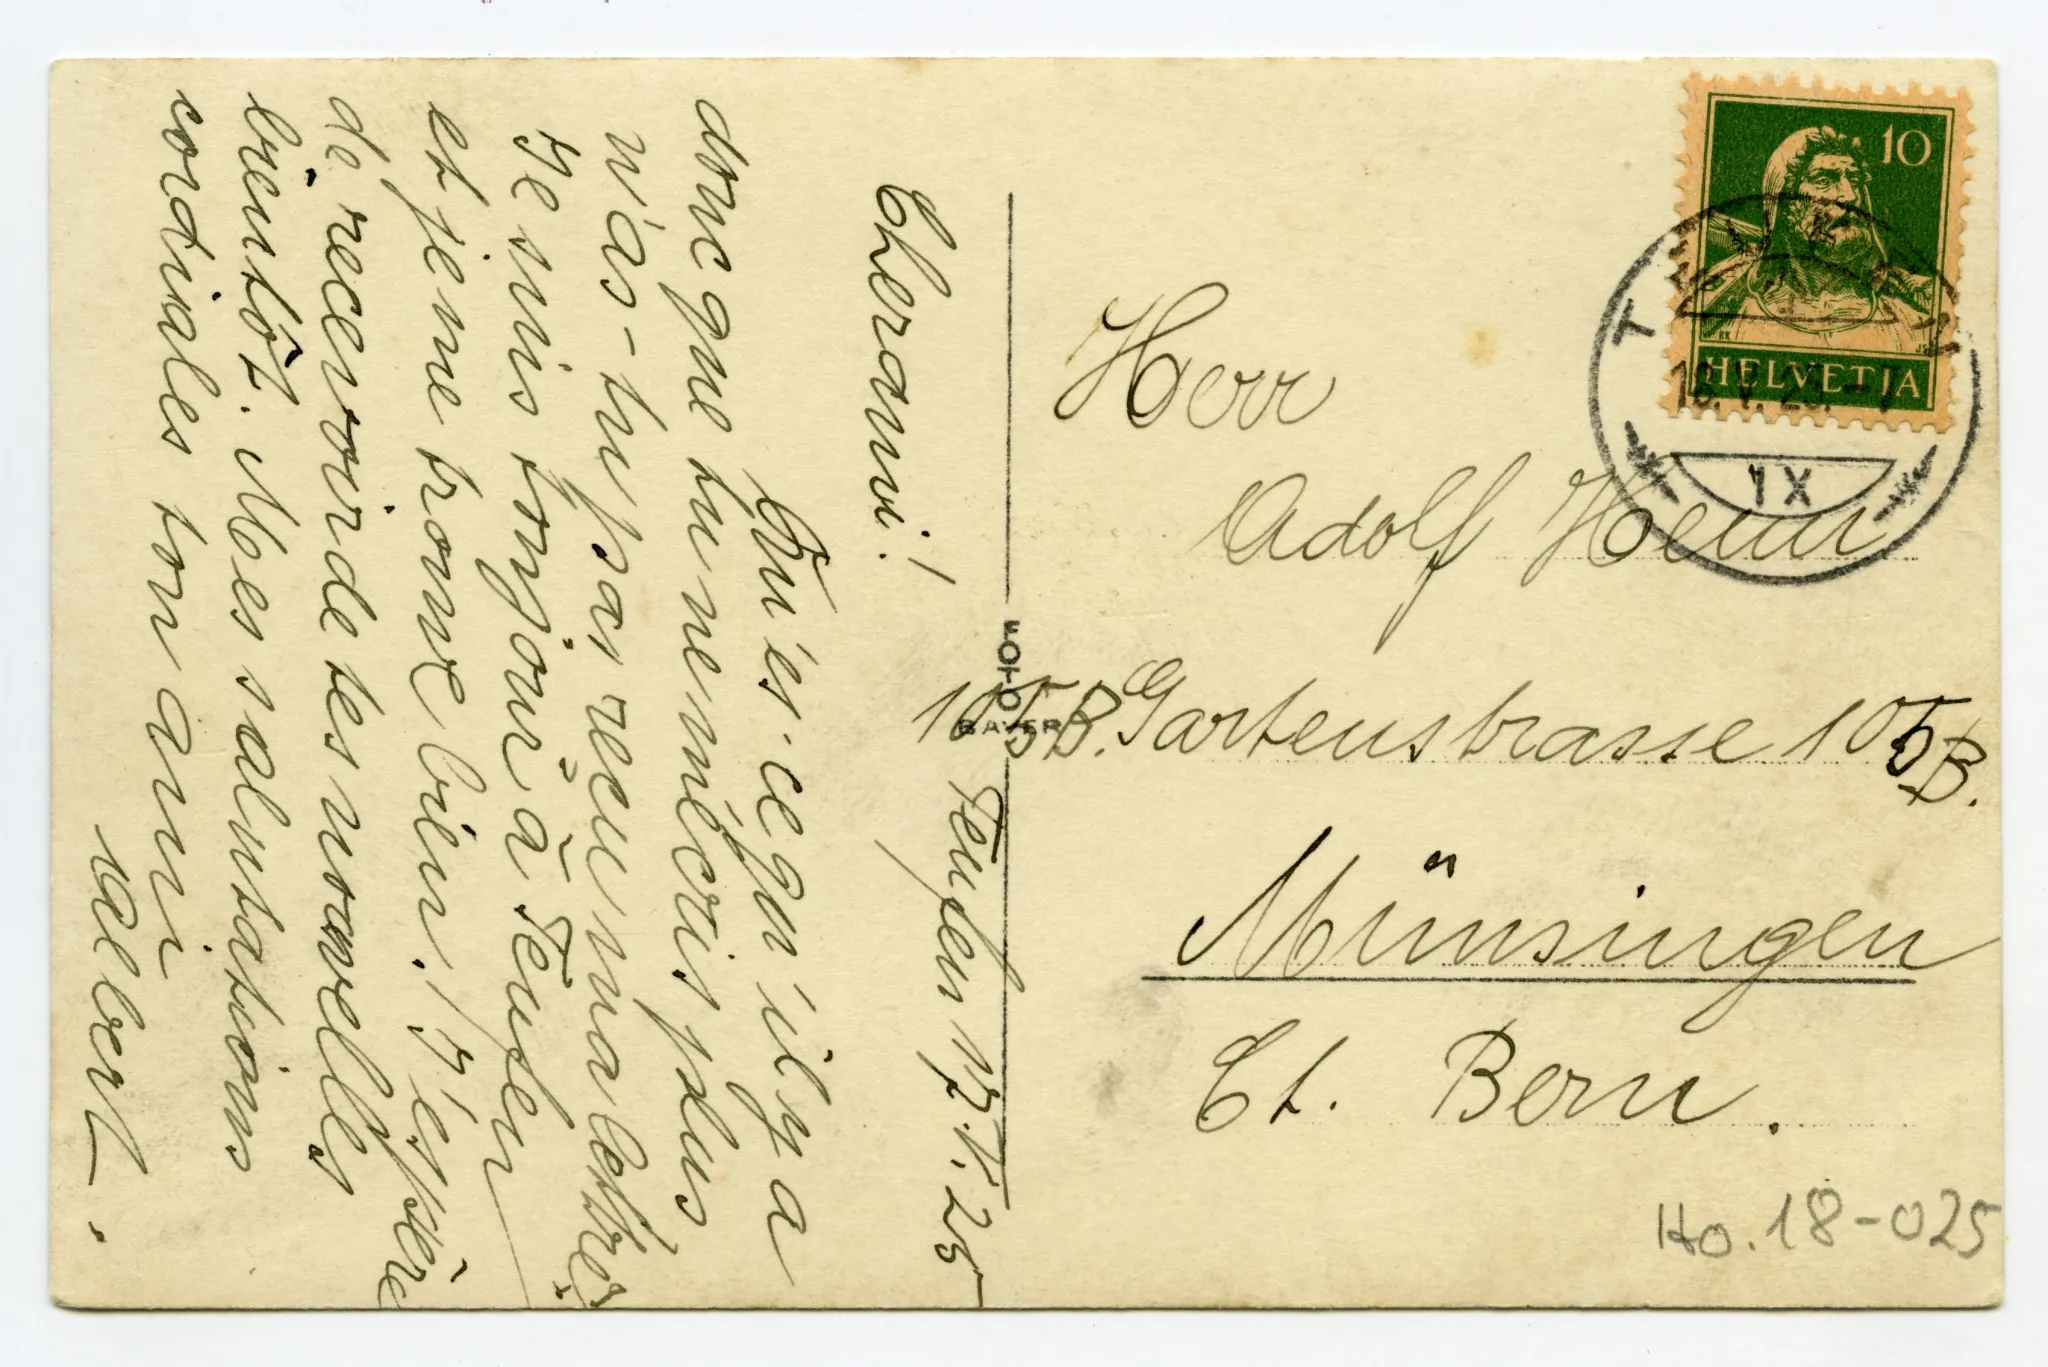 Teufen 17.V.25
Cher ami!
Qu'és-ce qu'il y a
donc que tu ne m'écris plus
n'as-tu pas reçu ma lettre?
Je suis toujour à Teufen
et je me trouve bien. J'éspère
de recevoir de tes nouvelles
bientôt. Mes salutations
cordiales ton ami
Albert.
PHOTO
BAYER
10
HELVETIA
TEUFEN
18.V.25.-7
IX
Herr
Adolf
105B. Gartenstrasse 105B.
Münsingen
Ct. Bern.
Ho.18-025